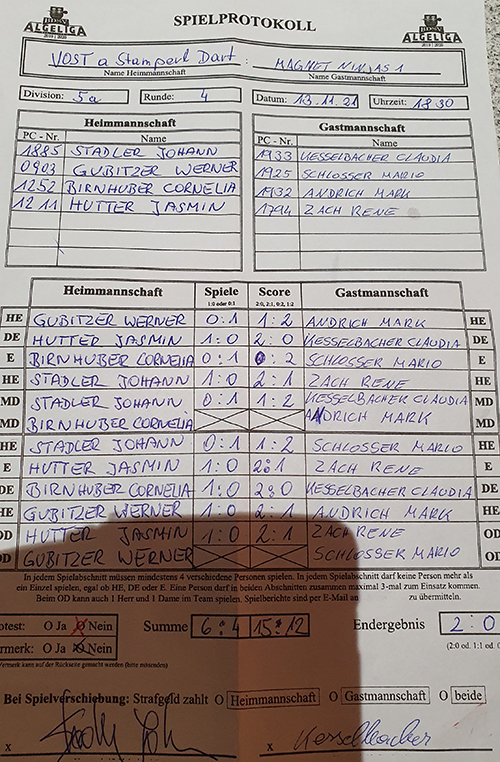 ALGELIGA SPIELPROTOKOLL ALGELIGA
VOST a Stamperl Dart : MAGNET NINJAS 1
Name Heimmannschaft Name Gastmannschaft
Division: 5a Runde: 4 Datum: 13.11.21 Uhrzeit: 18 30
Heimmannschaft Gastmannschaft
PC - Nr. Name PC - Nr. Name
1885 STADLER JOHANN 1933 KESSELBACHER CLAUDIA
0903 GUBITZER WERNER 1925 SCHLOSSER MARIO
1252 BIRNHUBER CORNELIA 1932 ANDRICH MARK
1211 HUTTER JASMIN 1794 ZACH RENE
Heimmannschaft Spiele Score Gastmannschaft
1:0 oder 0:1 2:0, 2:1, 0:2, 1:2
HE GUBITZER WERNER 0:1 1:2 ANDRICH MARK HE
DE HUTTER JASMIN 1:0 2:0 KESSELBACHER CLAUDIA DE
E BIRNHUBER CORNELIA 0:1 0:2 SCHLOSSER MARIO E
HE STADLER JOHANN 1:0 2:1 ZACH RENE HE
MD STADLER JOHANN 0:1 1:2 KESSELBACHER CLAUDIA MD
MD BIRNHUBER CORNELIA ANDRICH MARK MD
HE STADLER JOHANN 0:1 1:2 SCHLOSSER MARIO HE
E HUTTER JASMIN 1:0 2:1 ZACH RENE E
DE BIRNHUBER CORNELIA 1:0 2:0 KESSELBACHER CLAUDIA DE
HE GUBITZER WERNER 1:0 2:1 ANDRICH MARK HE
OD HUTTER JASMIN 1:0 2:1 ZACH RENE OD
OD GUBITZER WERNER SCHLOSSER MARIO OD
In jedem Spielabschnitt müssen mindestens 4 verschiedene Personen spielen. In jedem Spielabschnitt darf keine Person mehr als
ein Einzel spielen, egal ob HE, DE oder E. Eine Person darf in beiden Abschnitten zusammen maximal 3-mal zum Einsatz kommen.
Beim OD kann auch 1 Herr und 1 Dame im Team spielen. Spielberichte sind per E-Mail an zu übermitteln.
otest: O Ja O Nein Summe 6:4 15:12 Endergebnis 2:0
rmerk: O Ja O Nein (2:0 od. 1:1 od.
Vermerk kann auf der Rückseite gemacht werden (bitte ankreuzen)
Bei Spielverschiebung: Strafgeld zahlt O Heimmannschaft O Gastmannschaft O beide
x x Kesselbacher